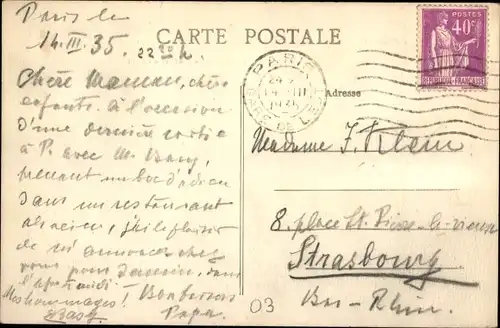 Paris le
14.III.35. 22 20 h
CARTE POSTALE
POSTES
40c
REPUBLIQUE FRANÇAISE
PARIS
GARE DE L'EST
Adresse
Chère Maman, chers
enfants. à l'occasion
d'une dernière sortie
à P. avec M.
prenant un boc d'adieu
dans un restaurant
alsacien, j'ai le plaisir
de m'annoncer chez
vous pour demain, dans
l'après midi. Bonbaisers
Mes hommages! Papa.
Madame J. Klein
8. place St. Pierre-le-vieux
Strasbourg
Bas-Rhin.
03